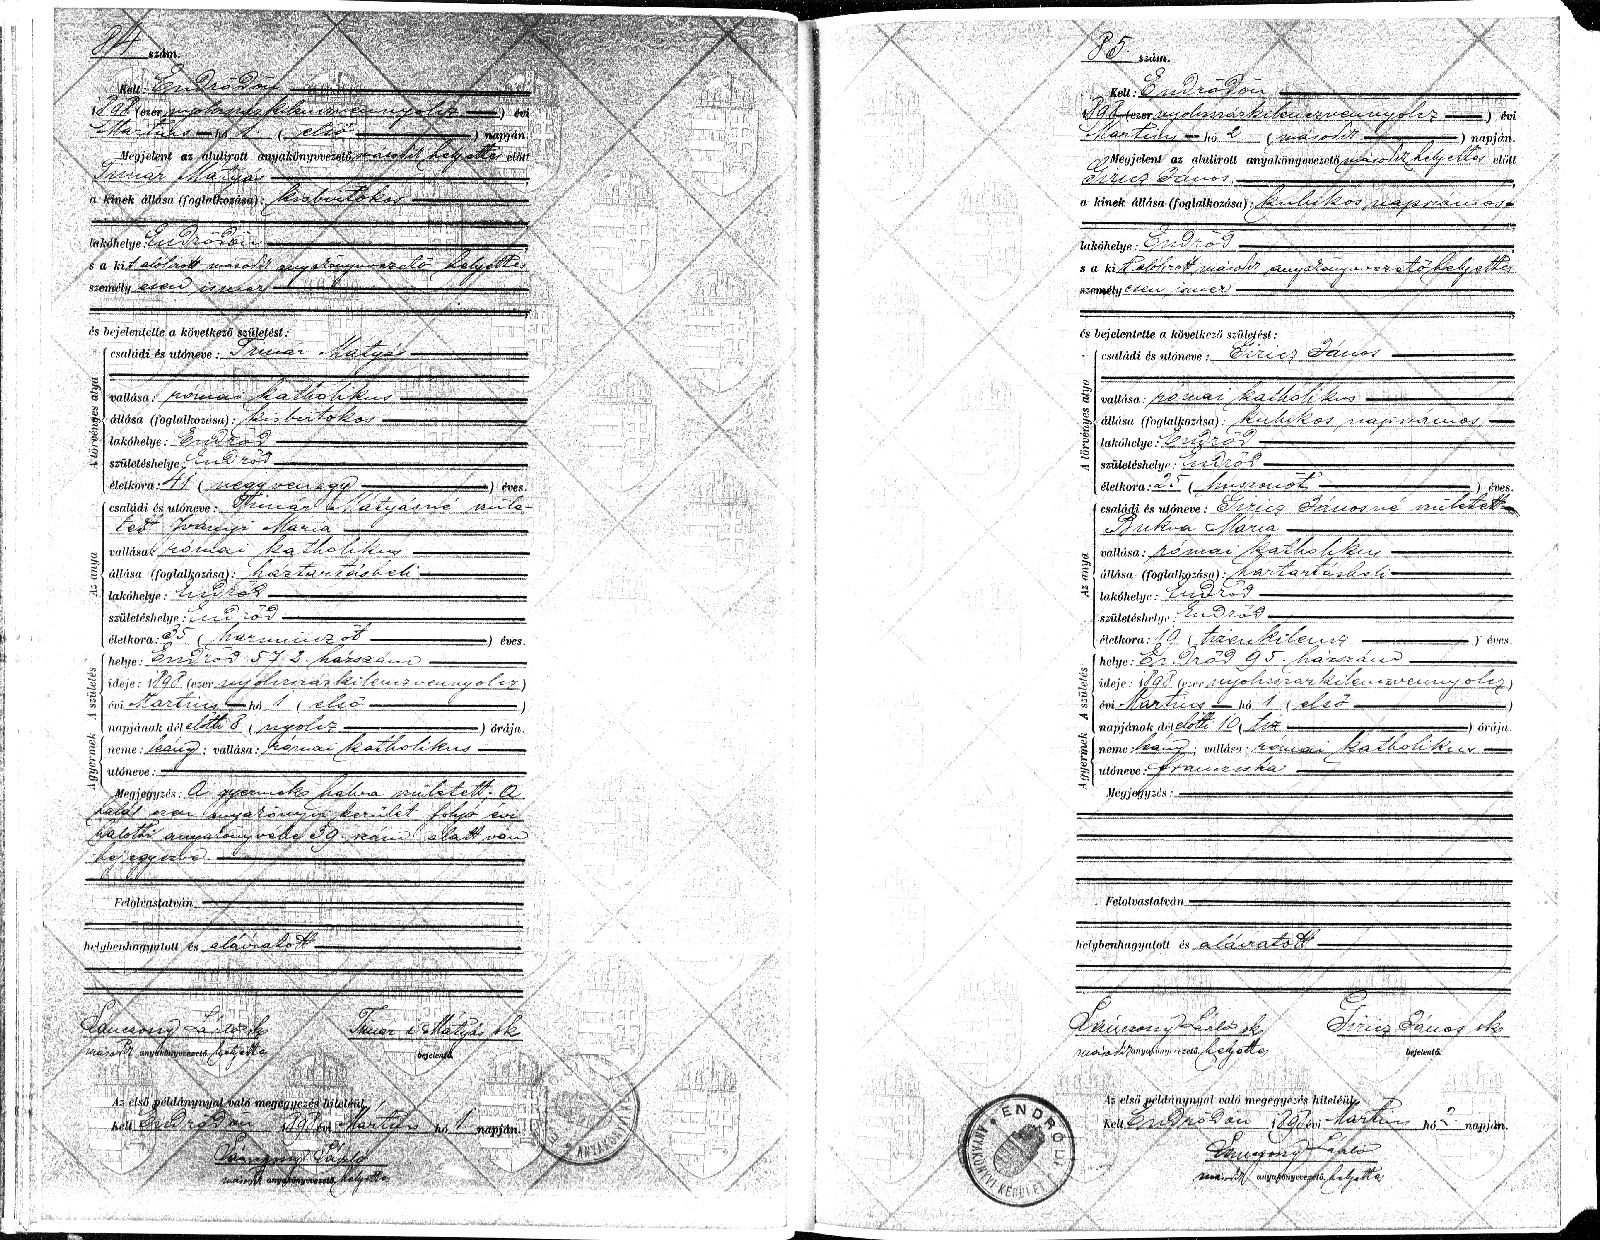 84 szám.
Kelt: Endrődön
1898 (ezernyolczszázkilenczvennyolcz) évi
Martius hó 1 (első) napján.
Megjelent az alulirott anyakönyvvezető második helyettes előtt
Timár Mátyás
a kinek állása (foglalkozása): kisbirtokos
lakóhelye: Endrődön
s a kit alólirott második anyakönyvvezető helyettes
személyesen ismer
és bejelentette a következő születést:
A törvényes atya
családi és utóneve: Timár Mátyás
vallása: római katholikus
állása (foglalkozása): kisbirtokos
lakóhelye: Endrőd
születéshelye: Endrőd
életkora: 41 (negyvenegy) éves.
Az anya
családi és utóneve: Timár Mátyásné szüle-
tett Iványi Maria
vallása: római katholikus
állása (foglalkozása): háztartásbeli
lakóhelye: Endrőd
születéshelye: Endrőd
életkora: 35 (harminczöt) éves.
A születés
helye: Endrőd 572 házszám
ideje: 1898 (ezernyolczszázkilenczvennyolcz)
évi Martius hó 1 (első)
napjának délelőtti 8 (nyolcz) órája.
A gyermek
neme: leány; vallása: római katholikus
utóneve:
Megjegyzés: A gyermek halva született. A
halál ezen anyakönyvi kerület folyó évi
halotti anyakönyvébe 59 szám alatt van
bejegyezve.
Felolvastatván,
helybenhagyatott és aláiratott
Lánczony László sk
második anyakönyvvezető helyettes
Timár Mátyás sk
bejelentő.
Az első példánynyal való megegyezés hiteléül
Kelt Endrődön 1898 évi Martius hó 1 napján.
Lánczony László
második anyakönyvvezető helyettes
85 szám.
Kelt: Endrődön
1898 (ezernyolczszázkilenczvennyolcz) évi
Martius hó 2 (második) napján.
Megjelent az alulirott anyakönyvvezető második helyettes előtt
Giricz János
a kinek állása (foglalkozása): kubikos napszámos
lakóhelye: Endrőd
s a kit alólirott második anyakönyvvezető helyettes
személyesen ismer
és bejelentette a következő születést:
A törvényes atya
családi és utóneve: Giricz János
vallása: római katholikus
állása (foglalkozása): kubikos napszámos
lakóhelye: Endrőd
születéshelye: Endrőd
életkora: 25 (huszonöt) éves.
Az anya
családi és utóneve: Giricz Jánosné született
Bukva Maria
vallása: római katholikus
állása (foglalkozása): háztartásbeli
lakóhelye: Endrőd
születéshelye: Endrőd
életkora: 19 (tizenkilencz) éves.
A születés
helye: Endrőd 95 házszám
ideje: 1898 (ezernyolczszázkilenczvennyolcz)
évi Martius hó 1 (első)
napjának délelőtti 10 (tiz) órája.
A gyermek
neme: leány; vallása: római katholikus
utóneve: Francziska
Megjegyzés:
Felolvastatván
helybenhagyatott és aláiratott
Lánczony László sk
második anyakönyvvezető helyettes
Giricz János sk
bejelentő.
Az első példánynyal való megegyezés hiteléül
Kelt Endrődön 1898 évi Martius hó 2 napján.
Lánczony László
második anyakönyvvezető helyettes
ENDRŐDI ANYAKÖNYVI KERÜLET